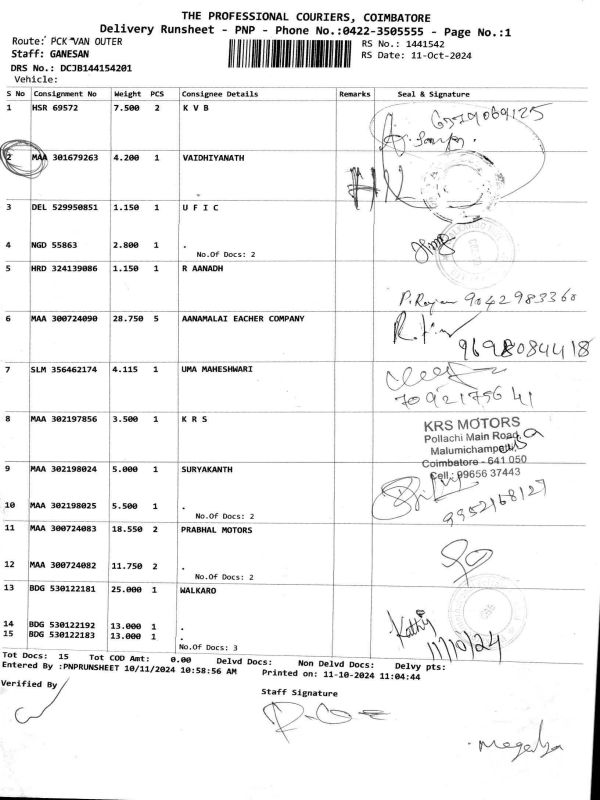 THE PROFESSIONAL COURIERS, COIMBATORE
Delivery Runsheet - PNP - Phone No.:0422-3505555 - Page No.:1
Route: PCK VAN OUTER RS No.: 1441542
Staff: GANESAN RS Date: 11-Oct-2024
DRS No.: DCJB144154201
Vehicle:
S No Consignment No Weight PCS Consignee Details Remarks Seal & Signature
1 HSR 69572 7.500 2 K V B
2 MAA 301679263 4.200 1 VAIDHIYANATH
3 DEL 529950851 1.150 1 U F I C
4 NGD 55863 2.800 1 .
No.Of Docs: 2
5 HRD 324139086 1.150 1 R AANADH
9042983360
6 MAA 300724090 28.750 5 AANAMALAI EACHER COMPANY
9698084418
7 SLM 356462174 4.115 1 UMA MAHESHWARI
7092175641
8 MAA 302197856 3.500 1 K R S
KRS MOTORS
Pollachi Main Road,
Coimbatore - 641 050
Cell: 99656 37443
9 MAA 302198024 5.000 1 SURYAKANTH
9952168127
10 MAA 302198025 5.500 1 .
No.Of Docs: 2
11 MAA 300724083 18.550 2 PRABHAL MOTORS
12 MAA 300724082 11.750 2 .
No.Of Docs: 2
13 BDG 530122181 25.000 1 WALKARO
14 BDG 530122192 13.000 1 .
15 BDG 530122183 13.000 1 .
No.Of Docs: 3
Kathij
11/10/24
Tot Docs: 15 Tot COD Amt: 0.00 Delvd Docs: Non Delvd Docs: Delvy pts:
Entered By :PNPRUNSHEET 10/11/2024 10:58:56 AM Printed on: 11-10-2024 11:04:44
Verified By
Staff Signature